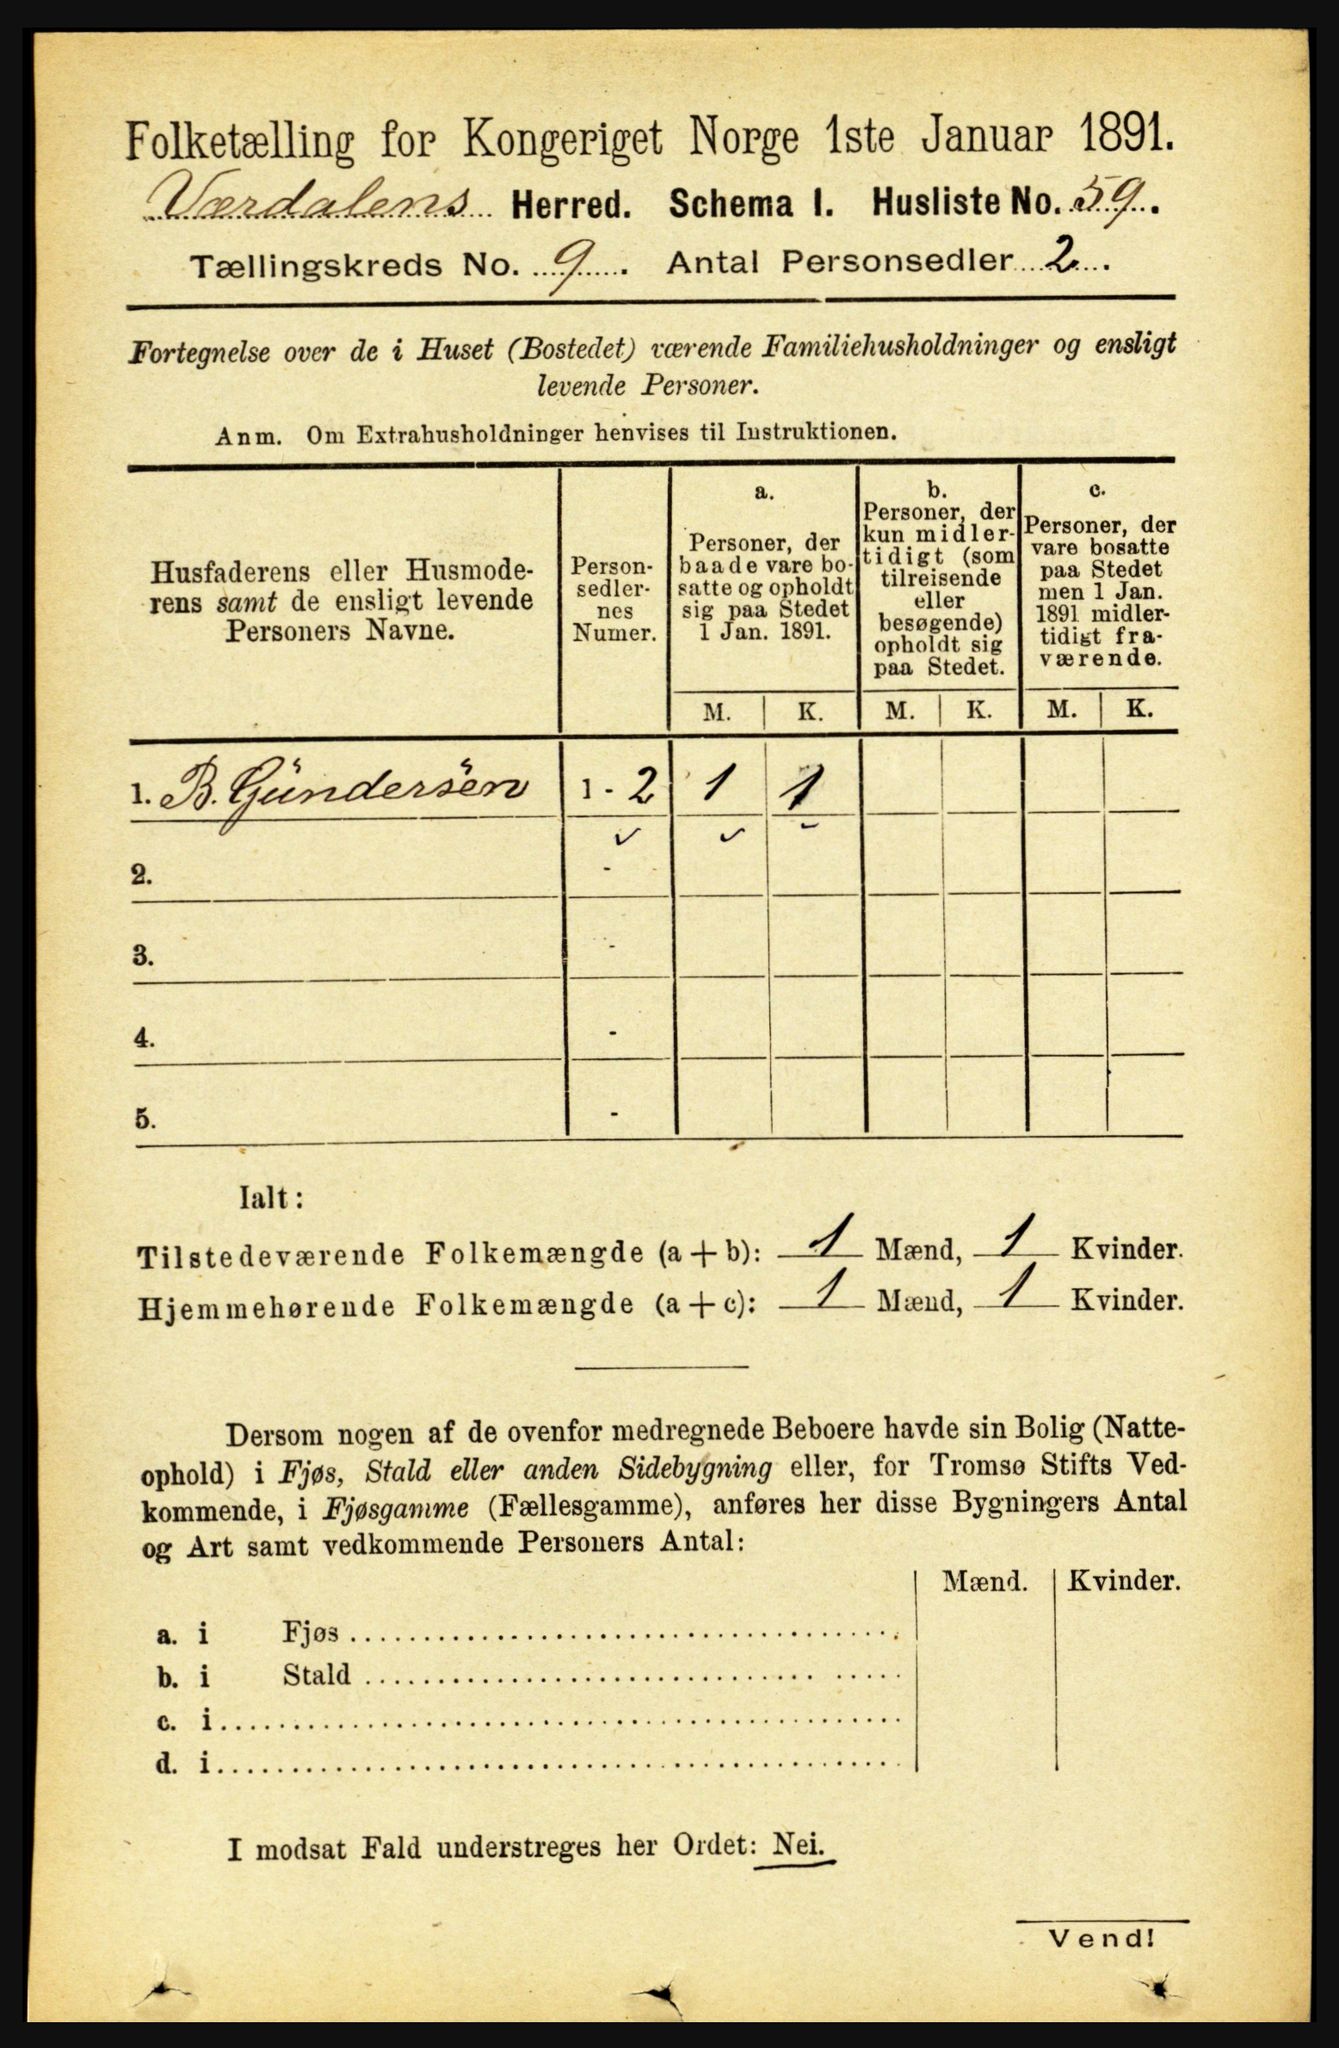 Folketælling for Kongeriget Norge 1ste Januar 1891.
Værdalens Herred. Schema I. Husliste No. 59.
Tællingskreds No. 9. Antal Personsedler 2.
Fortegnelse over de i Huset (Bostedet) værende Familiehusholdninger og ensligt
levende Personer.
Anm. Om Extrahusholdninger henvises til Instruktionen.
Husfaderens eller Husmode-
rens samt de ensligt levende
Personers Navne.
Person-
sedler-
nes
Numer.
a.
Personer, der
baade vare bo-
satte og opholdt
sig paa Stedet
1 Jan. 1891.
b.
Personer, der
kun midler-
tidigt (som
tilreisende
eller
besøgende)
opholdt sig
paa Stedet.
c.
Personer, der
vare bosatte
paa Stedet
men 1 Jan.
1891 midler-
tidigt fra-
værende.
M. K. M. K. M. K.
1. B. Gündersen 1 - 2 1 1
2. -
3. -
4. -
5. -
Ialt:
Tilstedeværende Folkemængde (a + b): 1 Mænd, 1 Kvinder.
Hjemmehørende Folkemængde (a + c): 1 Mænd, 1 Kvinder.
Dersom nogen af de ovenfor medregnede Beboere havde sin Bolig (Natte-
ophold) i Fjøs, Stald eller anden Sidebygning eller, for Tromsø Stifts Ved-
kommende, i Fjøsgamme (Fællesgamme), anføres her disse Bygningers Antal
og Art samt vedkommende Personers Antal:
Mænd. Kvinder.
a. i Fjøs
b. i Stald
c. i
d. i
I modsat Fald understreges her Ordet: Nei.
Vend!